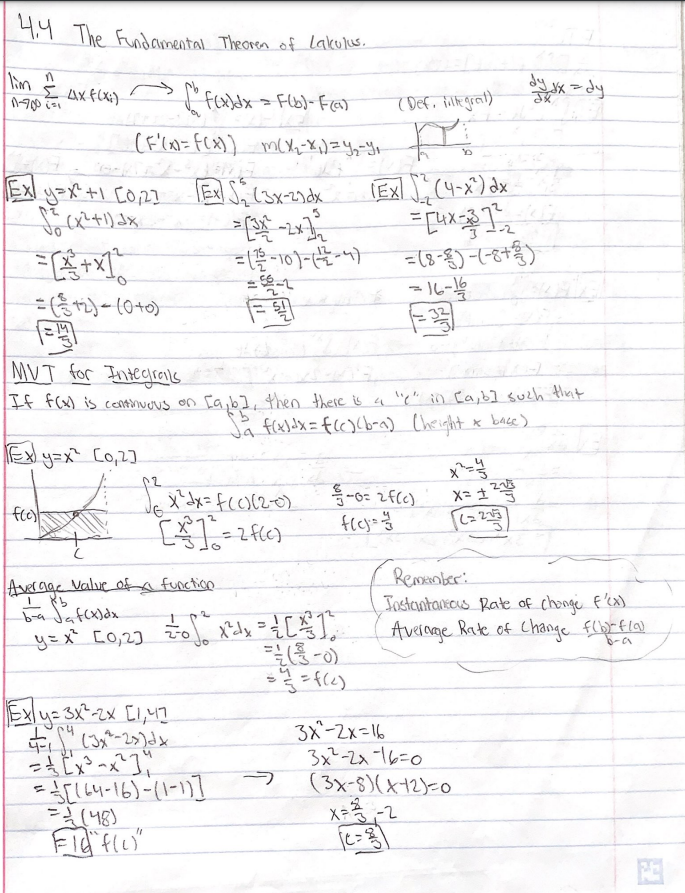 4.4 The Fundamental Theorem of Calculus.
lim n→∞ n Σ i=1 Δx f(xᵢ) → ∫ₐᵇ f(x)dx = F(b)-F(a) (Def. integral) dy/dx dx = dy
(F'(x)=f(x)) m(x₂-x₁)=y₂-y₁
a b
Ex y=x²+1 [0,2]
∫₀² (x²+1)dx
=[x³/3+x]₀²
=(8/3+2)-(0+0)
=14/3
Ex ∫₂⁵ (3x-2)dx
=[3x²/2-2x]₂⁵
=(75/2-10)-(12/2-4)
=55/2-2
=51/2
Ex ∫₋₂² (4-x²)dx
=[4x-x³/3]₋₂²
=(8-8/3)-(-8+8/3)
=16-16/3
=32/3
MVT for Integrals
If f(x) is continuous on [a,b], then there is a "c" in [a,b] such that
∫ₐᵇ f(x)dx=f(c)(b-a) (height x base)
Ex y=x² [0,2]
f(c)
c
∫₀² x²dx=f(c)(2-0)
[x³/3]₀²=2f(c)
8/3-0=2f(c)
f(c)=4/3
x²=4/3
x=±2√3/3
c=2√3/3
Average Value of a function
1/b-a ∫ₐᵇ f(x)dx
y=x² [0,2] 1/2-0 ∫₀² x²dx=1/2[x³/3]₀²
=1/2(8/3-0)
=4/3=f(c)
Remember:
Instantaneous Rate of change f'(x)
Average Rate of Change f(b)-f(a)/b-a
Ex y=3x²-2x [1,4]
1/4-1 ∫₁⁴ (3x²-2x)dx
=1/3[x³-x²]₁⁴
=1/3[(64-16)-(1-1)] →
=1/3(48)
=16 "f(c)"
3x²-2x=16
3x²-2x-16=0
(3x-8)(x+2)=0
x=8/3,-2
c=8/3